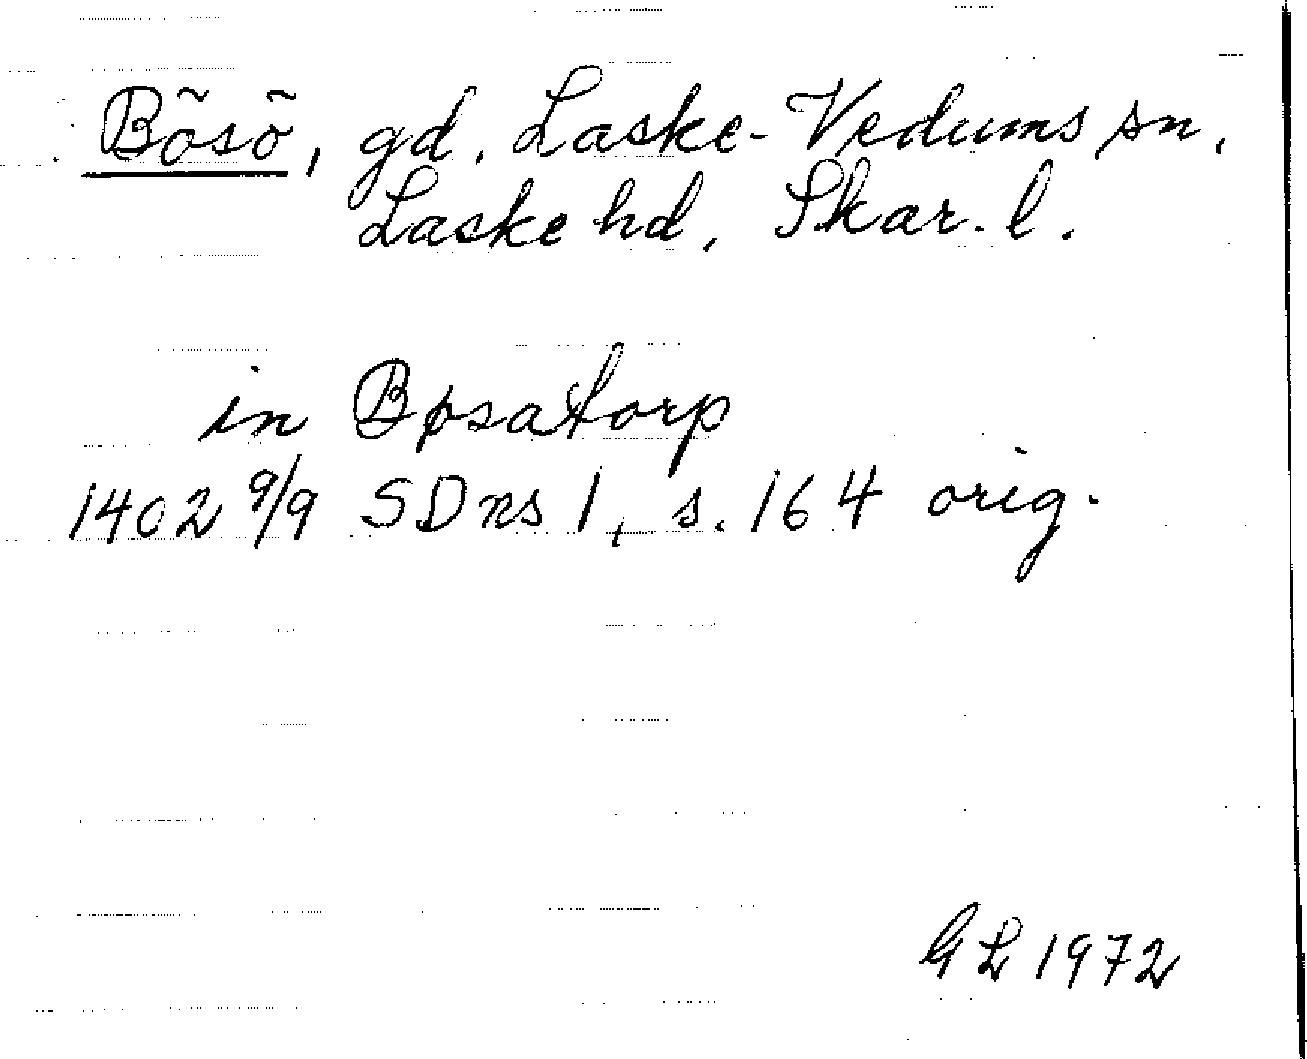 Bösö, gd. Laske-Vedums sn,
Laske hd, Skar. l.
in Bøsatorp
1402 9/9 SDns 1, s. 164 orig.
GL 1972